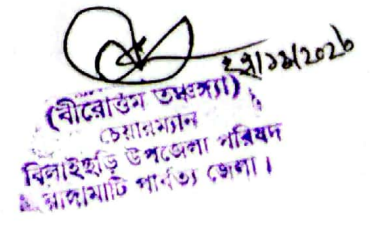 (বীরোত্তম তঞ্চঙ্গ্যা)
চেয়ারম্যান
বিলাইছড়ি উপজেলা পরিষদ
রাঙ্গামাটি পার্বত্য জেলা।